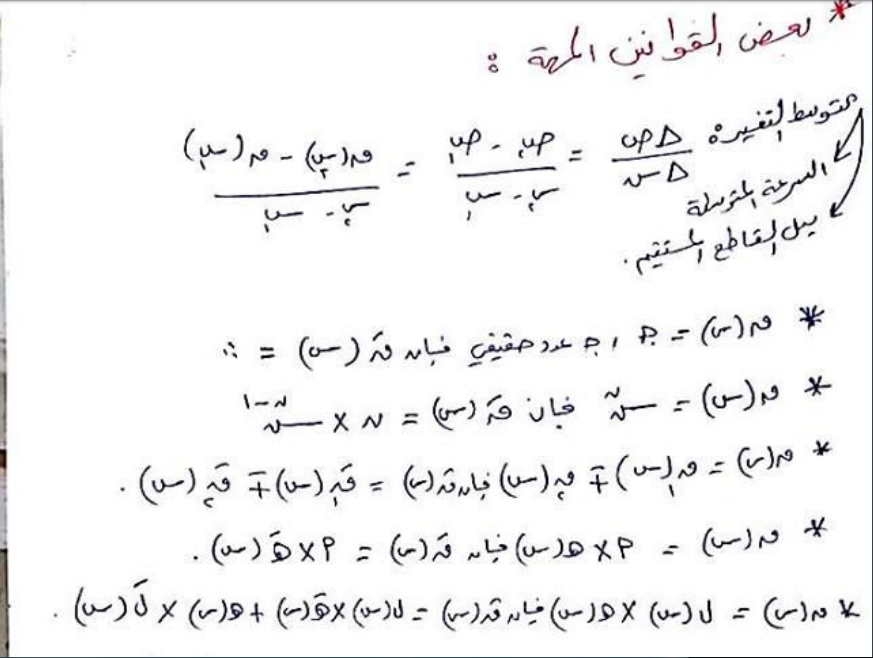 * بعض القوانين المهمة :
متوسط التغير = Δص / Δس = (ص٢ - ص١) / (س٢ - س١) = (ق(س٢) - ق(س١)) / (س٢ - س١)
السرعة المتوسطة
ميل القاطع المستقيم .
* ق(س) = جـ ، جـ عدد حقيقي فإن قَ(س) = ٠
* ق(س) = س^ن فإن قَ(س) = ن × س^(ن-١)
* ق(س) = ق١(س) ∓ ق٢(س) فإن قَ(س) = قَ١(س) ∓ قَ٢(س) .
* ق(س) = P × هـ(س) فإن قَ(س) = P × هـَ(س) .
* ق(س) = ل(س) × هـ(س) فإن قَ(س) = ل(س) × هـَ(س) + هـ(س) × لَ(س) .